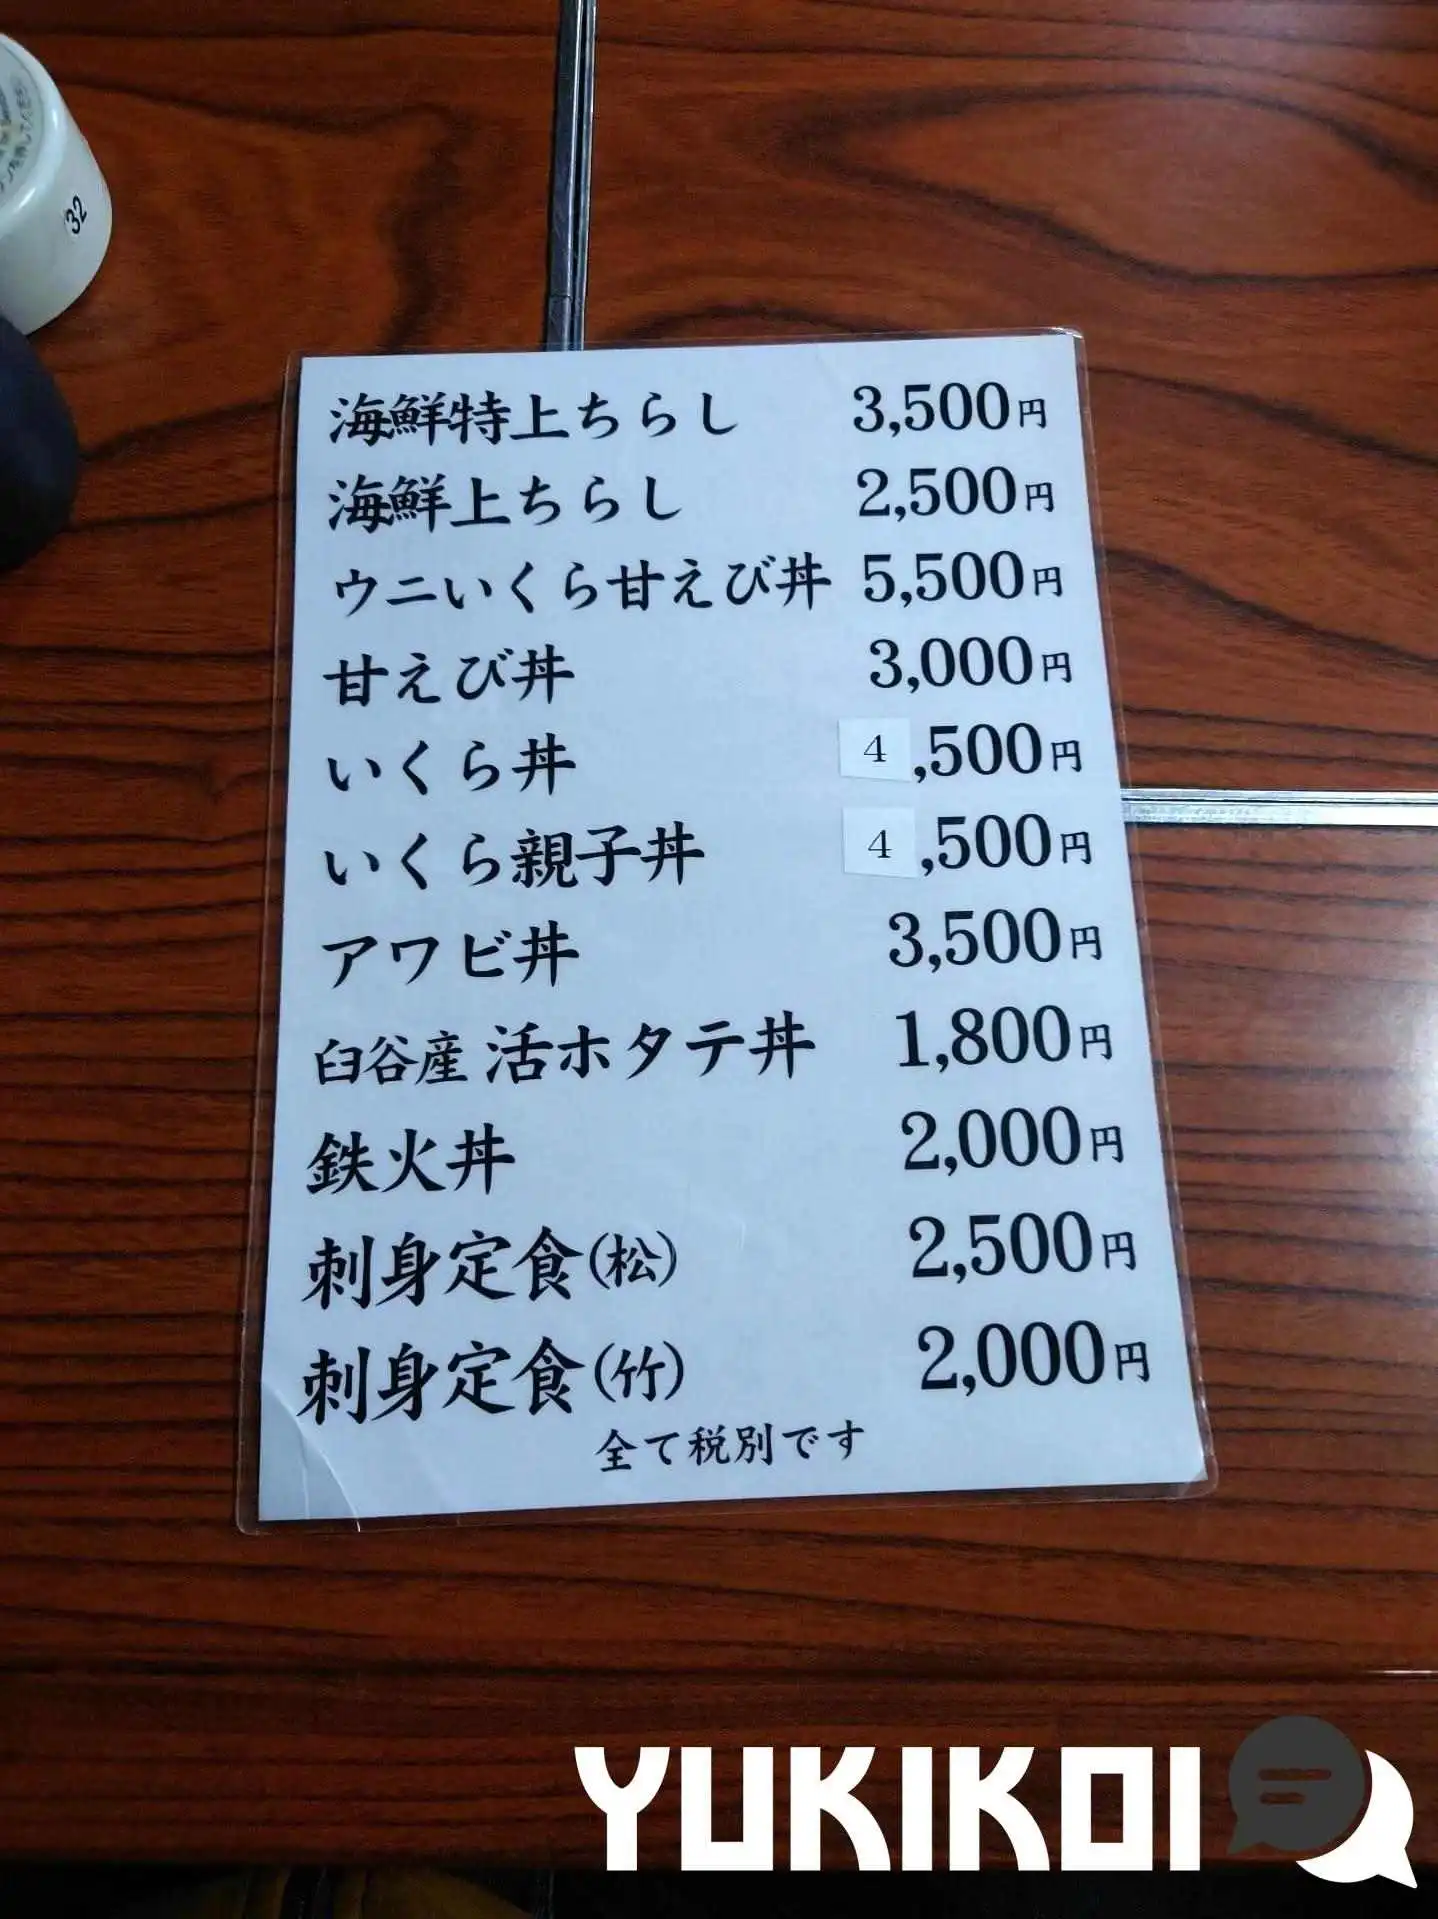 32
海鮮特上ちらし 3,500円
海鮮上ちらし 2,500円
ウニいくら甘えび丼 5,500円
甘えび丼 3,000円
いくら丼 4,500円
いくら親子丼 4,500円
アワビ丼 3,500円
臼谷産 活ホタテ丼 1,800円
鉄火丼 2,000円
刺身定食(松) 2,500円
刺身定食(竹) 2,000円
全て税別です
YUKIKOI